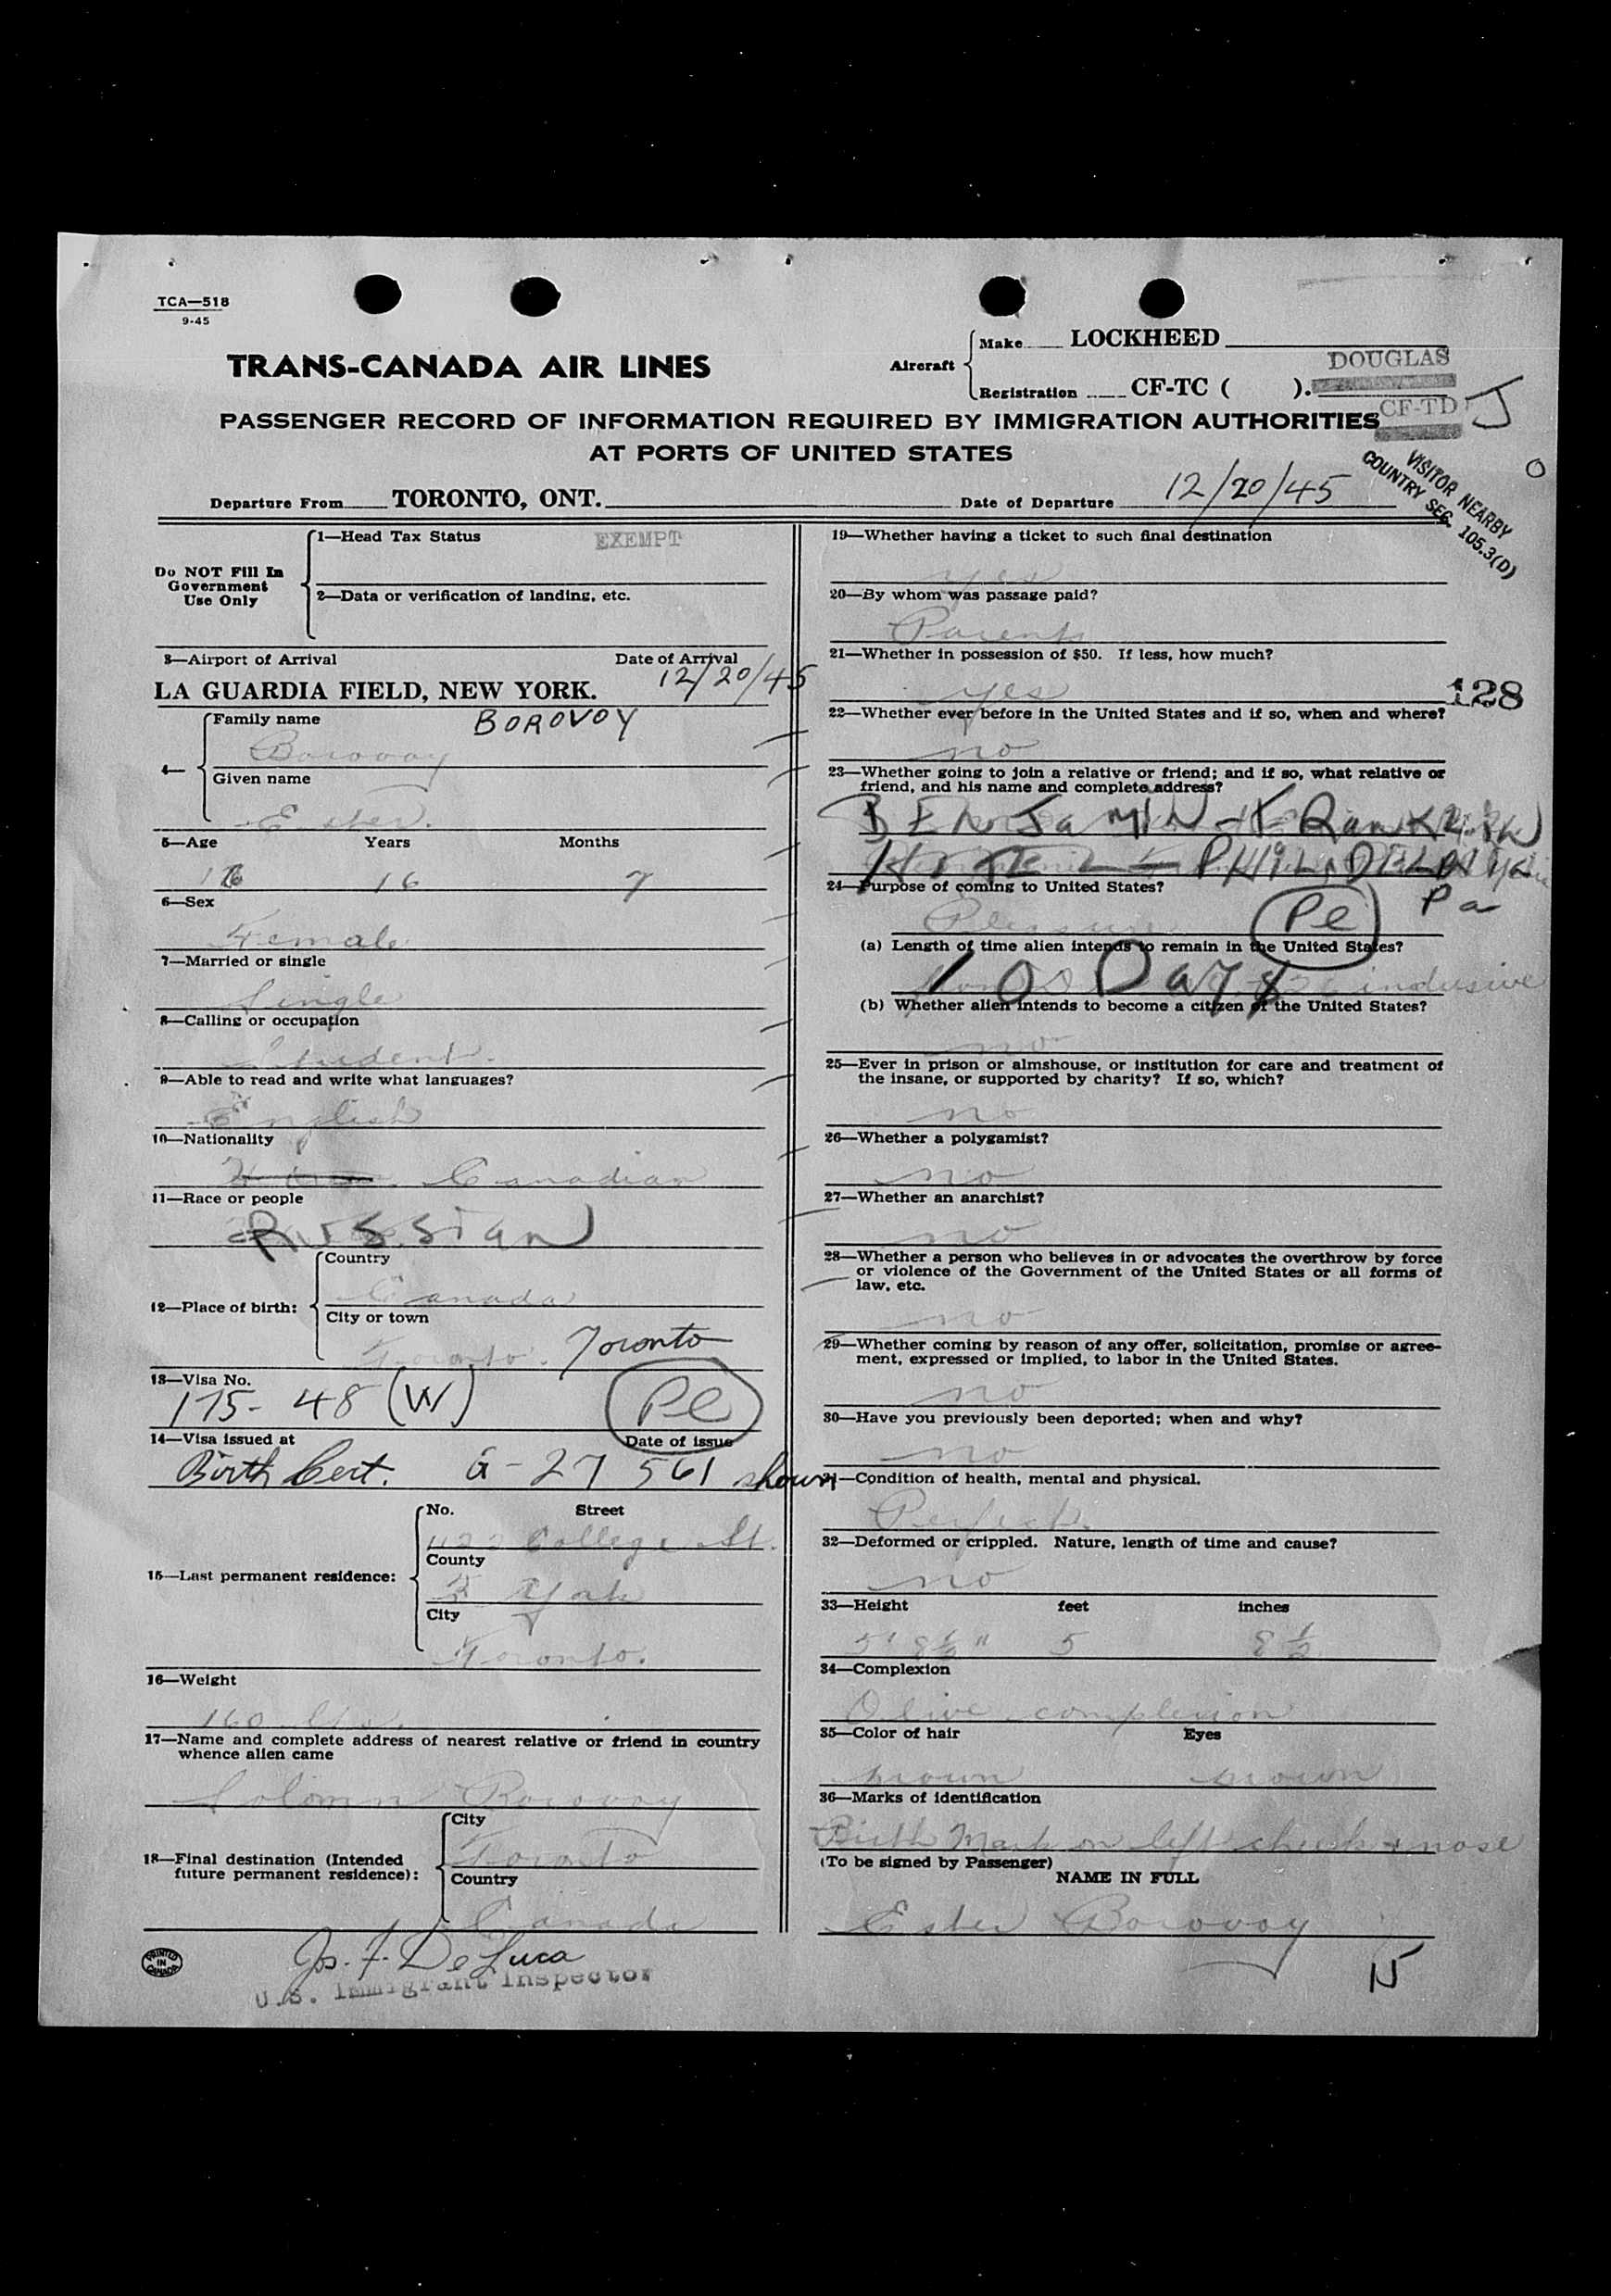 TCA—518
9-45
TRANS-CANADA AIR LINES
Aircraft
Make LOCKHEED
DOUGLAS
Registration CF-TC ( ).
CF-TD J
PASSENGER RECORD OF INFORMATION REQUIRED BY IMMIGRATION AUTHORITIES
AT PORTS OF UNITED STATES
VISITOR NEARBY
COUNTRY SEC. 105.3(D)
Departure From TORONTO, ONT. Date of Departure 12/20/45
Do NOT Fill In
Government
Use Only
1—Head Tax Status EXEMPT
2—Data or verification of landing, etc.
3—Airport of Arrival Date of Arrival
LA GUARDIA FIELD, NEW YORK. 12/20/45
4— Family name BOROVOY
Borovoy
Given name
Ester.
5—Age Years Months
16 16 7
6—Sex
Female
7—Married or single
Single
8—Calling or occupation
Student.
9—Able to read and write what languages?
English
10—Nationality
Canadian
11—Race or people
RUSSIAN
12—Place of birth:
Country
Canada
City or town
Toronto. Toronto
13—Visa No.
175-48 (W) Pl
14—Visa issued at Date of issue
Birth Cert. G-27561 shown
15—Last permanent residence:
No. Street
College St.
County
York
City
Toronto.
16—Weight
160 lbs.
17—Name and complete address of nearest relative or friend in country
whence alien came
Solomn Borovoy
18—Final destination (Intended
future permanent residence):
City
Toronto
Country
Canada
PRINTED
IN
CANADA
Jos. F. DeLuca
U.S. Immigrant Inspector
19—Whether having a ticket to such final destination
yes
20—By whom was passage paid?
Parents
21—Whether in possession of $50. If less, how much?
yes
128
22—Whether ever before in the United States and if so, when and where?
no
23—Whether going to join a relative or friend; and if so, what relative or
friend, and his name and complete address?
BENJAMIN FRANKLIN
HOTEL — PHILADELPHIA
Pa
24—Purpose of coming to United States?
Pleasure Pl
(a) Length of time alien intends to remain in the United States?
10 DAYS inclusive
(b) Whether alien intends to become a citizen of the United States?
no
25—Ever in prison or almshouse, or institution for care and treatment of
the insane, or supported by charity? If so, which?
no
26—Whether a polygamist?
no
27—Whether an anarchist?
no
28—Whether a person who believes in or advocates the overthrow by force
or violence of the Government of the United States or all forms of
law, etc.
no
29—Whether coming by reason of any offer, solicitation, promise or agree-
ment, expressed or implied, to labor in the United States.
no
30—Have you previously been deported; when and why?
no
31—Condition of health, mental and physical.
Perfect.
32—Deformed or crippled. Nature, length of time and cause?
no
33—Height feet inches
5' 8½" 5 8½
34—Complexion
Olive complexion
35—Color of hair Eyes
brown brown
36—Marks of identification
Birth Mark on left cheek & nose
(To be signed by Passenger)
NAME IN FULL
Ester Borovoy
15